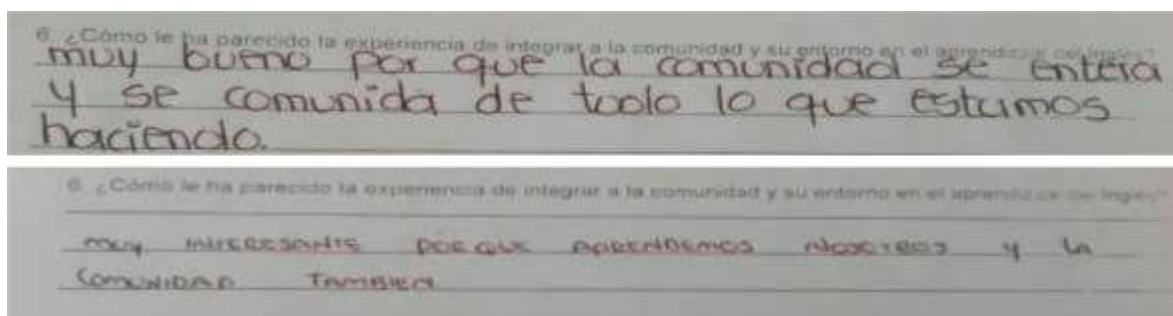 6. ¿Cómo le ha parecido la experiencia de integrar a la comunidad y su entorno en el aprendizaje del inglés?
muy bueno por que la comunidad se entera
y se comunida de todo lo que estamos
haciendo.
6. ¿Cómo le ha parecido la experiencia de integrar a la comunidad y su entorno en el aprendizaje del inglés?
muy interesante porque aprendemos nosotros y la
comunidad tambien